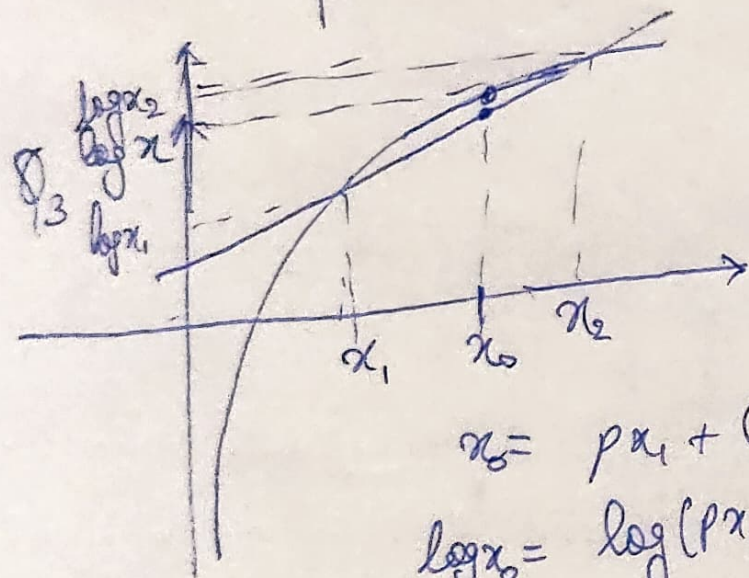 log x₂
log x
Q₃
log x₁
x₁ x₀ x₂
x₀ = px₁ + (
log x₀ = log(px